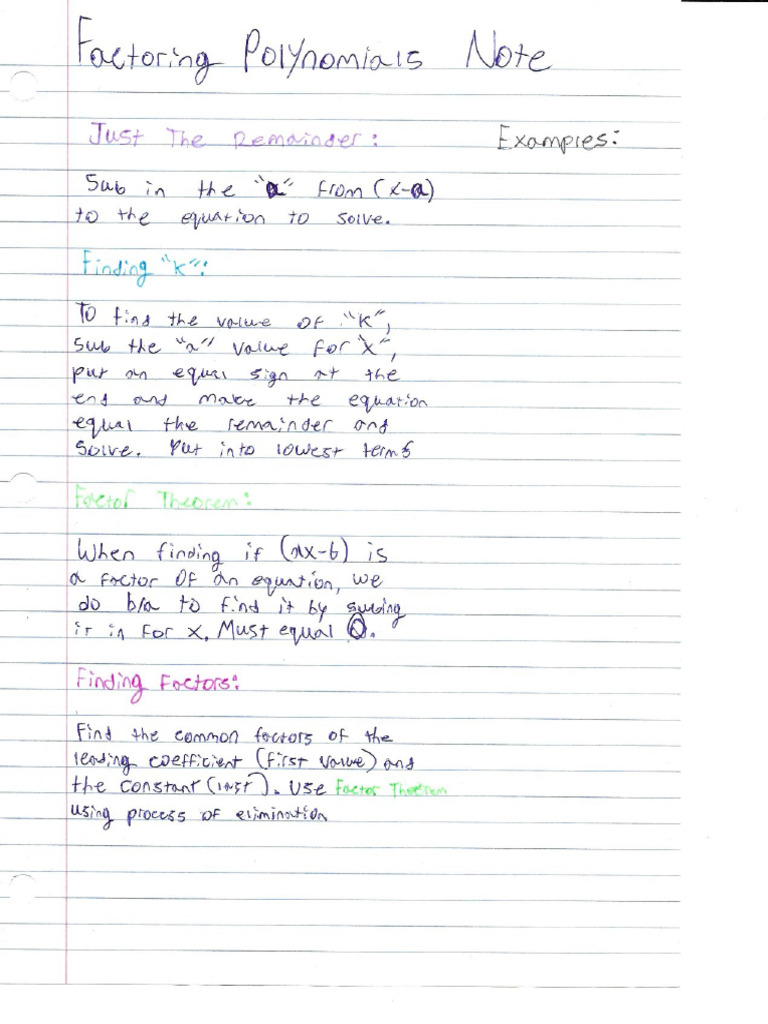 Factoring Polynomials Note
Just The Remainder:
Examples:
Sub in the "a" from (x-a)
to the equation to solve.
Finding "K":
To find the value of "K",
sub the "a" value for "x",
put an equal sign at the
end and make the equation
equal the remainder and
solve. Put into lowest terms
Factor Theorem:
When finding if (ax-b) is
a factor of an equation, we
do b/a to find it by subing
it in for x. Must equal 0.
Finding Factors:
Find the common factors of the
leading coefficient (first value) and
the constant (last). Use Factor Theorem
using process of elimination